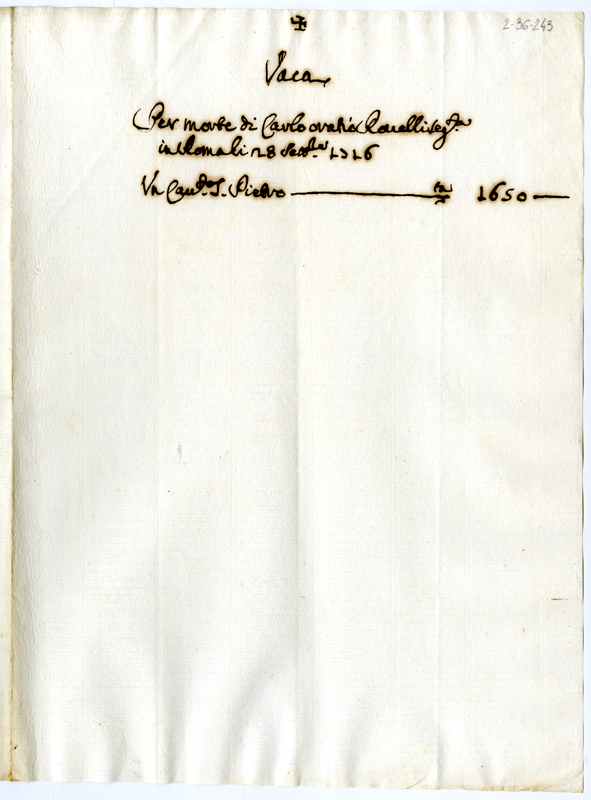 2-36-243
Vaca
Per morte di Carlo oratio Rouelli seg.ta
in Roma li 28 Sett.re 1716
Vn Cau.to S. Pietro 1650